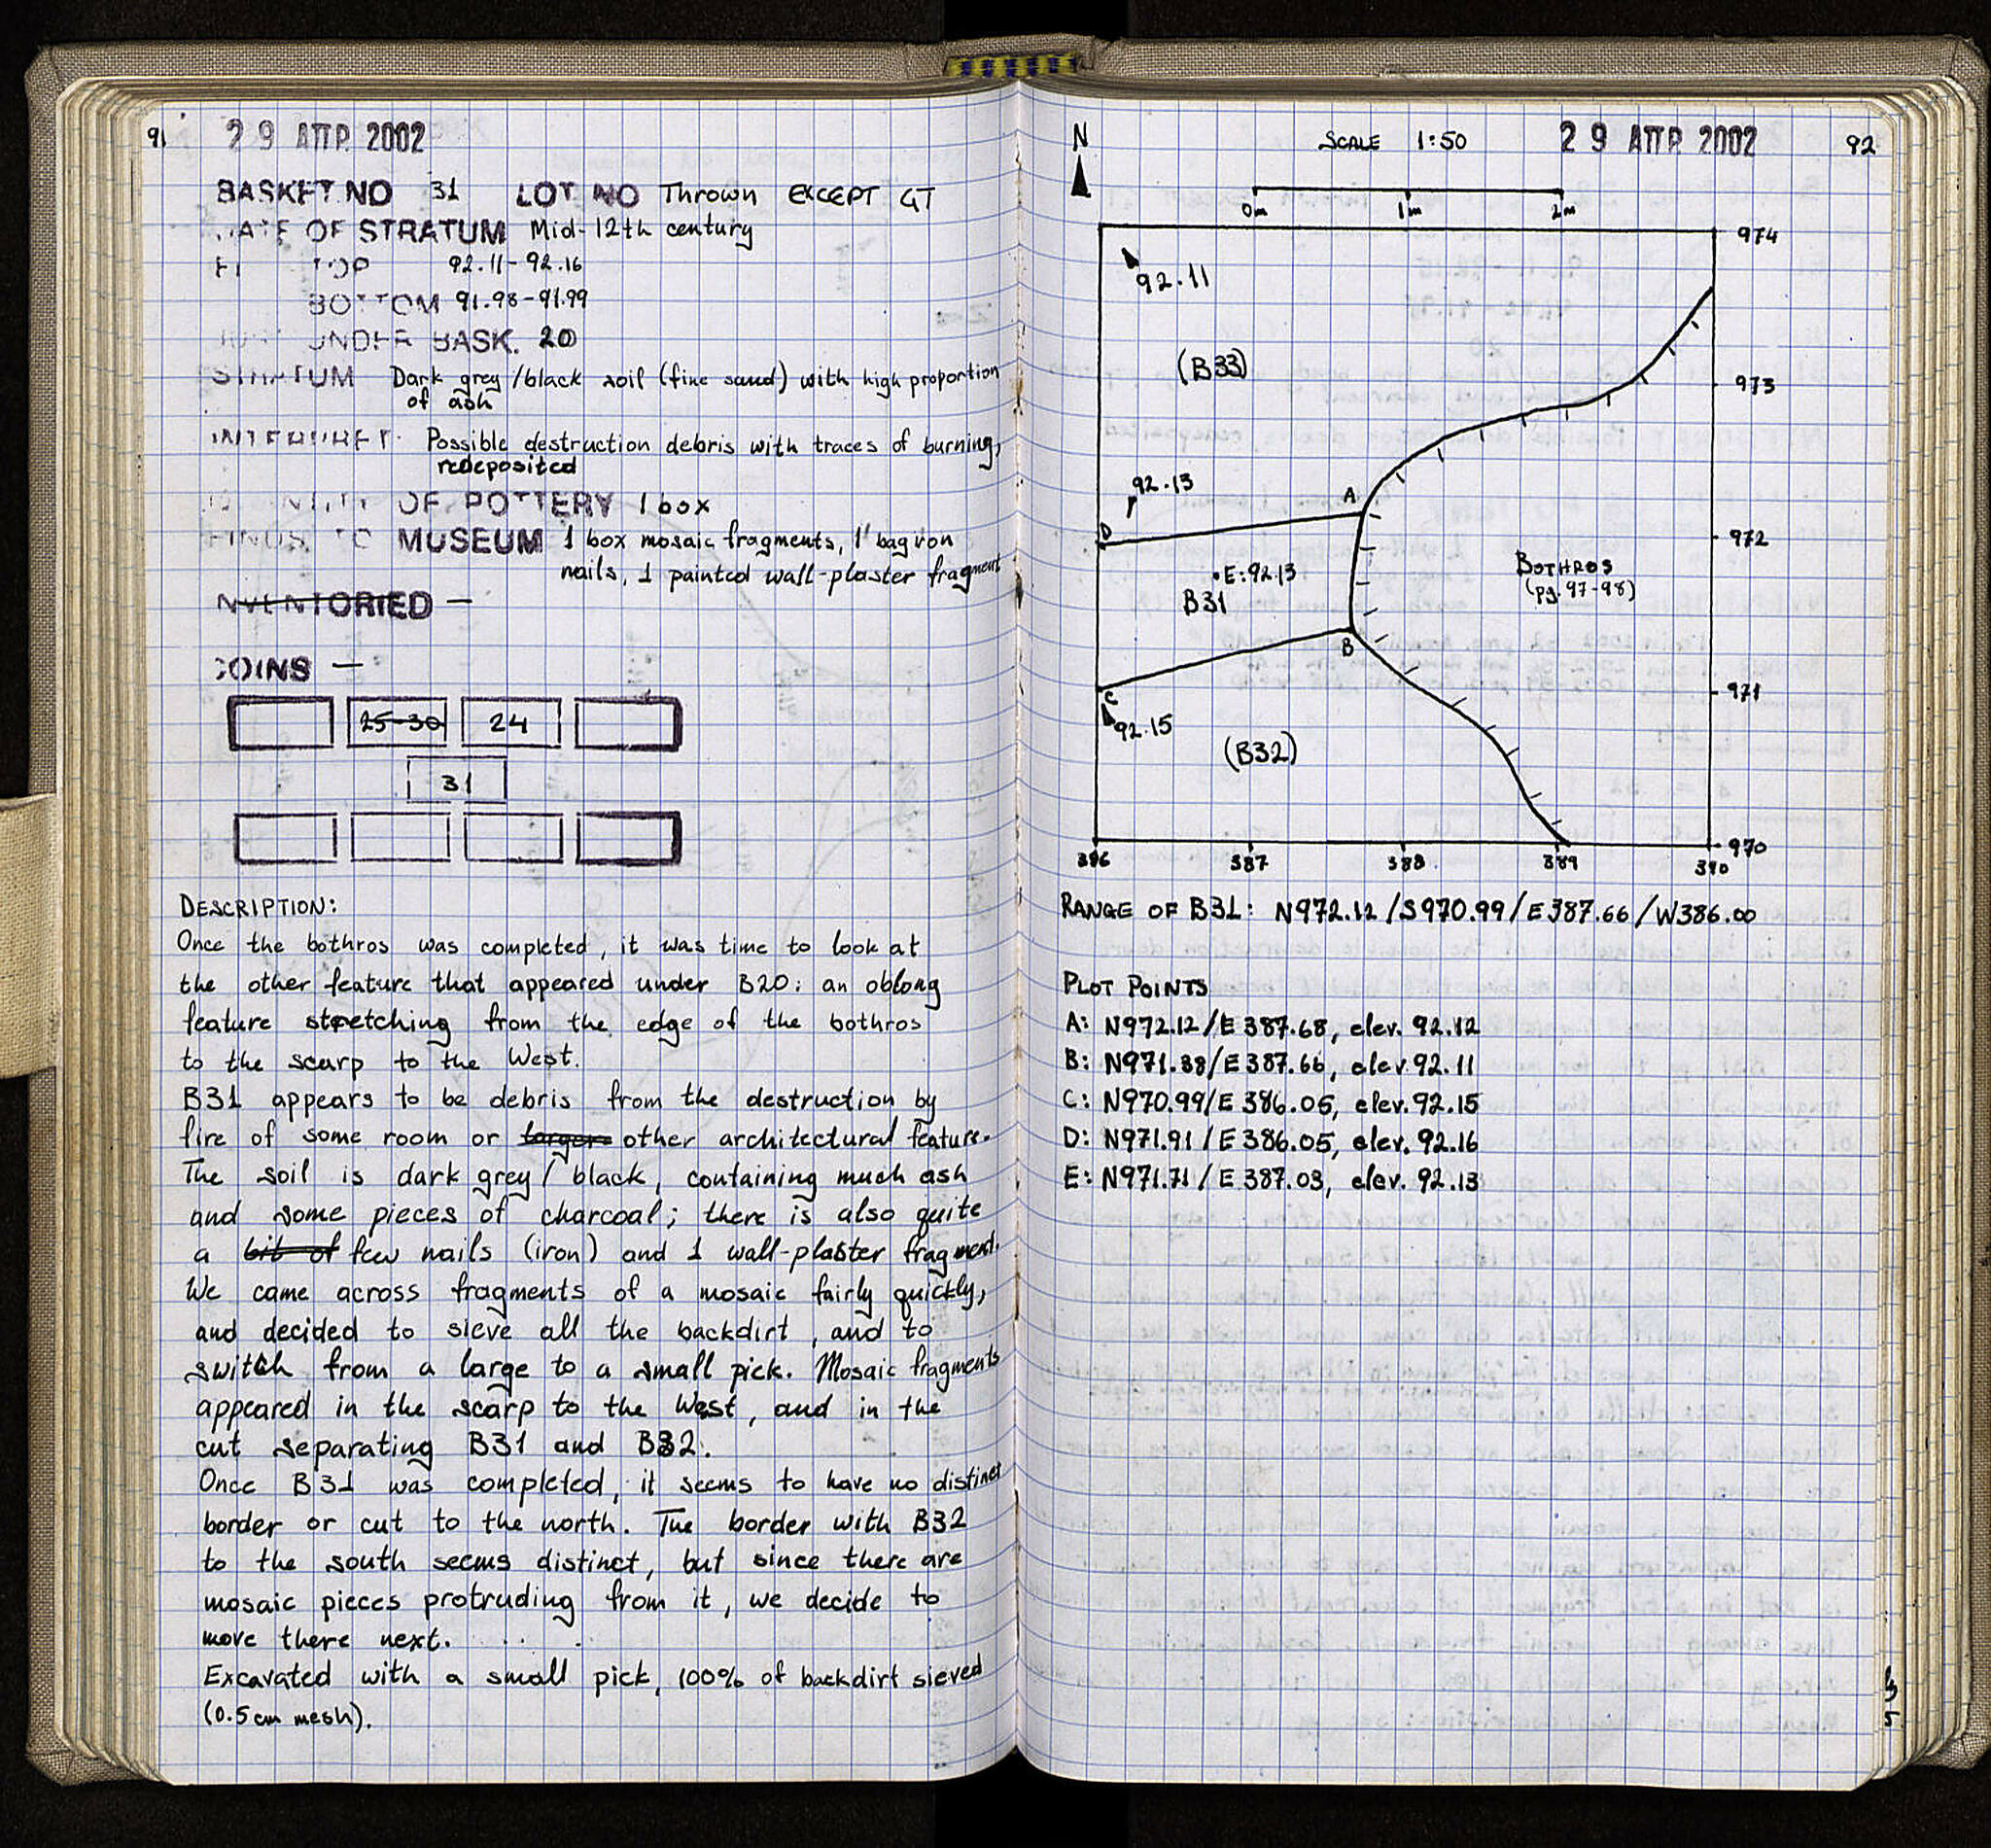 91
29 ΑΠΡ. 2002
BASKET NO 31 LOT NO Thrown EXCEPT GT
OF STRATUM Mid-12th century
TOP 92.11-92.16
BOTTOM 91.98-91.99
UNDER BASK. 20
STRATUM Dark grey/black soil (fine sand) with high proportion
of ash
INTERPRET. Possible destruction debris with traces of burning,
redeposited
OF POTTERY 1 box
FINDS TO MUSEUM 1 box mosaic fragments, 1 bag iron
nails, 1 painted wall-plaster fragment
INVENTORIED —
COINS —
25-30 24
31
DESCRIPTION:
Once the bothros was completed, it was time to look at
the other feature that appeared under B20: an oblong
feature stretching from the edge of the bothros
to the scarp to the West.
B31 appears to be debris from the destruction by
fire of some room or other architectural feature.
The soil is dark grey/black, containing much ash
and some pieces of charcoal; there is also quite
a bit of few nails (iron) and 1 wall-plaster fragment.
We came across fragments of a mosaic fairly quickly,
and decided to sieve all the backdirt, and to
switch from a large to a small pick. Mosaic fragments
appeared in the scarp to the West, and in the
cut separating B31 and B32.
Once B31 was completed, it seems to have no distinct
border or cut to the north. The border with B32
to the south seems distinct, but since there are
mosaic pieces protruding from it, we decide to
move there next.
Excavated with a small pick, 100% of backdirt sieved
(0.5cm mesh).
N SCALE 1:50 29 ΑΠΡ. 2002 92
0m 1m 2m
974
92.11
(B33)
973
92.13
A
D
972
BOTHROS
(pg. 97-98)
•E:92.13
B31
B
C
971
92.15
(B32)
970
386 387 388 389 390
RANGE OF B31: N972.12/S970.99/E387.66/W386.00
PLOT POINTS
A: N972.12/E387.68, elev. 92.12
B: N971.38/E387.66, elev. 92.11
C: N970.99/E386.05, elev. 92.15
D: N971.91/E386.05, elev. 92.16
E: N971.71/E387.03, elev. 92.13